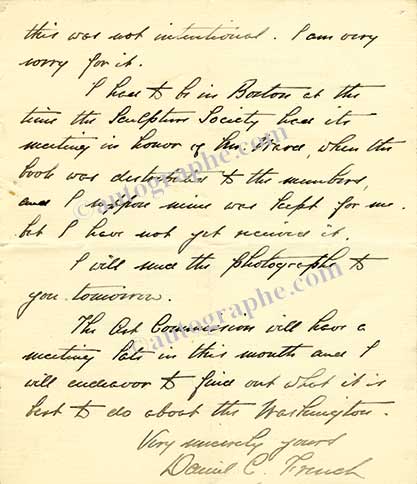 this was not intentional. I am very
sorry for it.
I had to be in Boston at the
time the Sculpture Society had its
meeting in honor of Mr. Ward, when the
book was distributed to the members,
and I suppose mine was kept for me.
but I have not yet received it.
I will send the photographs to
you tomorrow.
The Art Commission will have a
meeting late in this month and I
will endeavor to find out what it is
best to do about the Washington.
Very sincerely yours
Daniel C. French
©autographe.com
©autographe.com